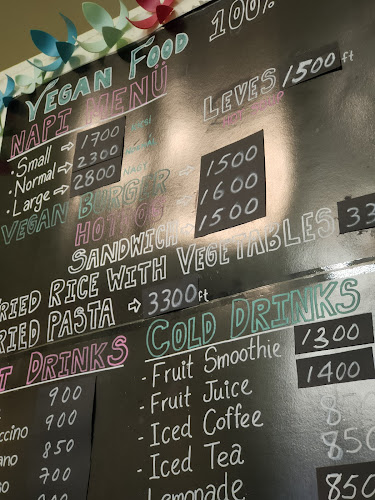 VEGAN FOOD 100%
NAPI MENÜ
LEVES 1500 ft
HOT SOUP
· Small → 1700 KICSI
· Normal → 2300 NORMÁL
· Large → 2800 NAGY
VEGAN BURGER → 1500
HOTDOG → 1600
SANDWICH → 1500
RIED RICE WITH VEGETABLES 33
RIED PASTA → 3300 ft
T DRINKS
COLD DRINKS
900
900
ccino 850
ano 700
- Fruit Smoothie 1300
- Fruit Juice 1400
- Iced Coffee
- Iced Tea 850
Lemonade 850